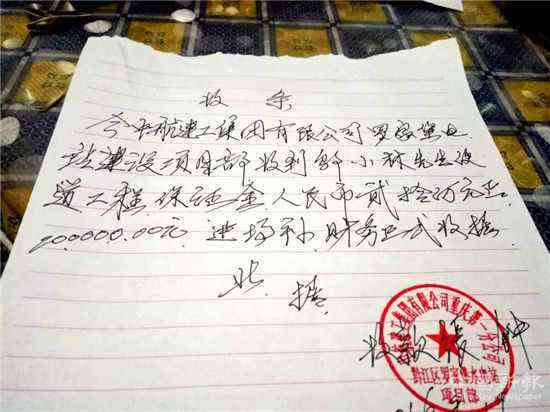 收条
今平航建工集团有限公司罗家堡电
站建设项目部收到邹小林先生
道工程保证金人民币贰拾万元正.
200000.00元. 进场补财务正式收据
此据
收款
集团有限公司重庆第一分公司
黔江区罗家堡水电站
项目部